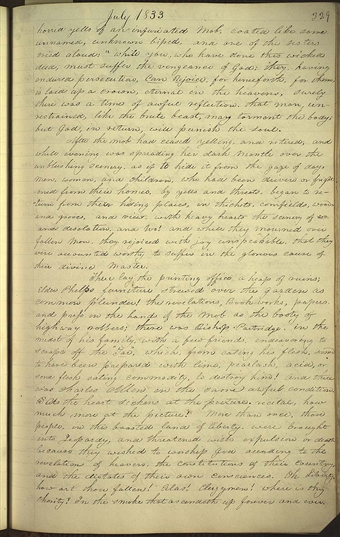 July 1833
329
horrid yells of an infuriated Mob, coated like some
unnamed, unknown biped, and one of the sisters
cried aloud: "While you, who have done this wicked
deed, must suffer the vengeance of God; they, having
endured persecution, Can Rejoice, for henceforth, for them
is laid up a crown, eternal in the heavens. Surely
there was a time of awful reflection, that man, un-
restrained, like the brute beast, may torment the body;
but God, in return, will punish the soul.
After the mob had ceased yelling, and retired, and
while evening was spreading her dark Mantle over the
unblushing scenes, as if to hide it from the gaze of day;
men, women, and children, who had been driven or fright-
ened from their homes, by yells and threats, began to re-
turn from their hiding places, in thickets, cornfields, woods
and groves, and view with heavy hearts the scenery of
and desolation, and wo! and while they mourned over
fallen Man, they rejoiced with joy unspeakable, that they
were accounted worthy to suffer in the glorious cause of
their divine Master.
There lay the printing office, a heap of ruins;
Elder Phelps furniture strewed over the garden as
common plunder! the revelations, Book works, papers,
and press in the hands of the Mob, as the booty of
highway robbers; there was Bishop Partridge, in the
midst of his family, with a few friends, endeavoring to
scrape off the Tar, which, from eating his flesh, seemed
to have been prepared with lime, pearlash, acid, or
some flesh eating commodity, to destroy him! and there
was Charles Allen in the same awful condition.
the heart sickens at the recital, how
much more at the picture! More than once, those
people, in the boasted land of liberty, were brought
into Jeopardy, and threatened with expulsion or death
because they wished to worship God according to the
revelations of heaven, the constitution of their Country,
and the dictates of their own consciences. Oh Liberty,
how art thou fallen! Alas! Clergymen! where is thy
charity! In the smoke that ascendeth up forever and ever.